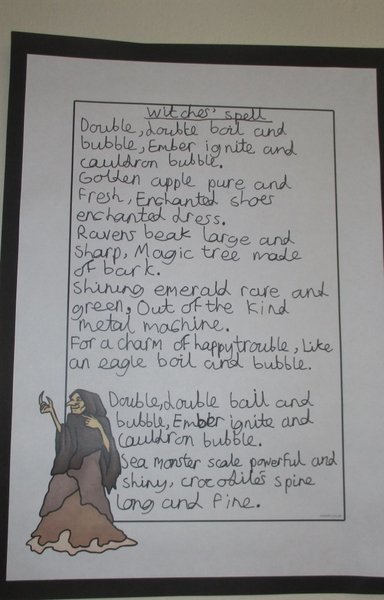 Witches' spell
Double, double boil and
bubble, Ember ignite and
cauldron bubble.
Golden apple pure and
Fresh, Enchanted shoes
enchanted dress.
Ravens beak large and
Sharp, Magic tree made
of bark.
Shining emerald rare and
green, Out of the kind
metal machine.
For a charm of happytrouble, Like
an eagle boil and bubble.
Double, double bail and
bubble, Ember ignite and
cauldron bubble.
Sea monster scale powerful and
shiny, crocodile's spine
long and fine.